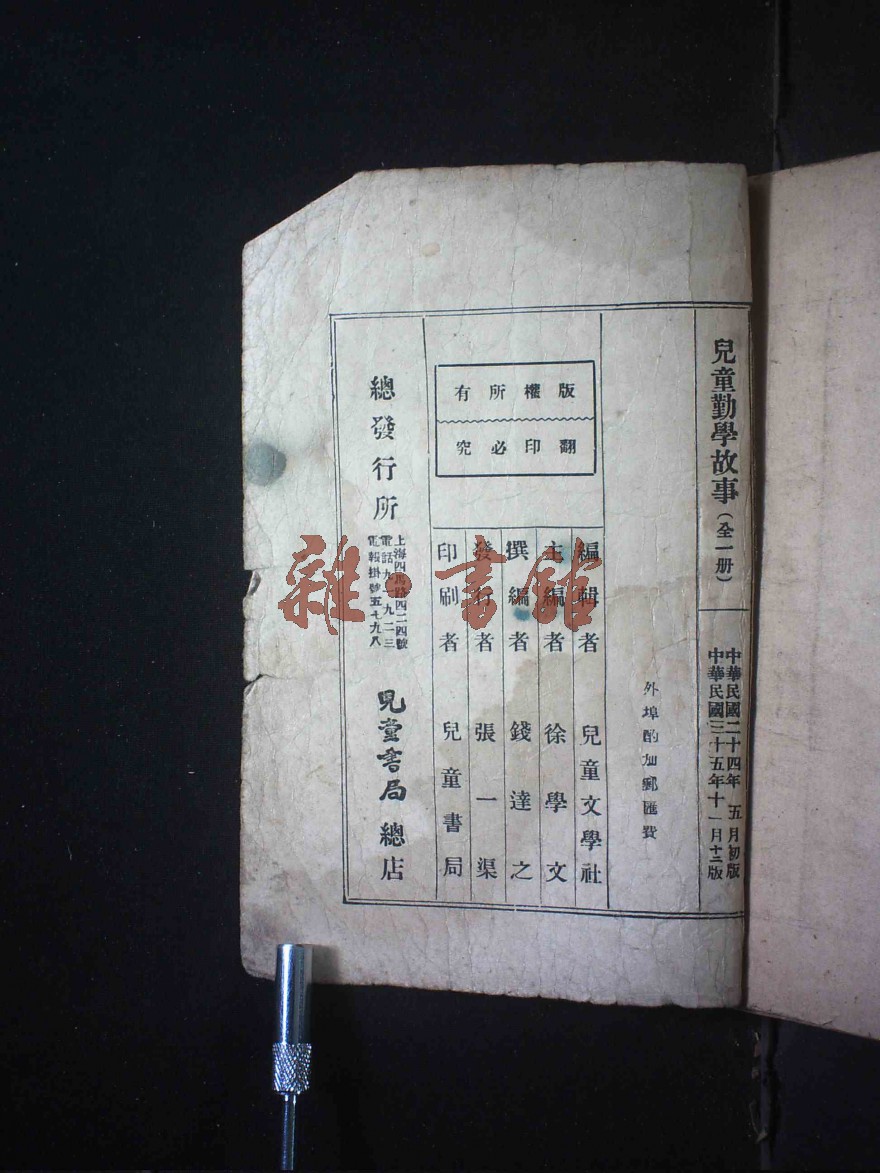 兒童勤學故事(全一册)
中華民國二十四年 五月初版
中華民國三十五年十一月十二版
外埠酌加郵匯費
版權所有
翻印必究
編輯者 兒童文學社
主編者 徐學文
撰編者 錢達之
發行者 張一渠
印刷者 兒童書局
總發行所
上海四馬路四二四號
電話九一九二三
電報掛號五七九八
兒童書局 總店
雜·書館